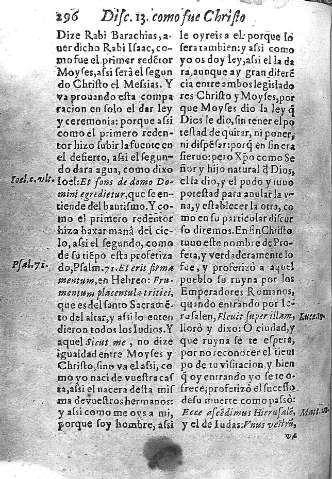 296 Disc. 13. como fue Christo
Dize Rabi Barachias, a-
uer dicho Rabi Isaac, co-
mo fue el primer redẽtor
Moyses, assi será el segun
do Christo el Messias. Y
va prouando esta compa
racion en solo dar ley
y ceremonia; porque assi
como el primero reden-
tor hizo subir la fuente en
el desierto, assi el segun-
do dara agua, como dixo
Ioel: Et fons de domo Do-
mini egredietur, que se en-
tiende del bautismo. Y co-
mo el primero redẽtor
hizo baxar maná del cie-
lo, assi el segundo, como
de su tiẽpo esta profetiza
do, Psalm. 71. Et erit firma
mentum, en Hebreo: Fru-
mentum placentula tritici,
que es del santo Sacramẽ-
to del altar, y assi lo enten
dieron todos los Iudios. Y
aquel Sicut me, no dize
igualdad entre Moyses y
Christo, sino va el assi, co
mo yo naci de vuestra cas
ta, assi el nacera desta mis
ma de vuestros hermanos:
y assi como me oys a mi,
porque soy hombre, assi
Ioel. c. vlt.
Psal. 71.
le oyreis a el: porque lo
sera tambien: y assi como
yo os doy ley, assi el la da
ra, aunque ay gran diferẽ
cia entre ambos legislado
res Christo y Moyses, por
que Moyses dio la ley q̃
Dios le dio, sin tener el po
testad de quitar, ni poner,
ni dispẽsar: porq̃ en fin era
sieruo: pero Xp̃o como Se
ñor y hijo natural d̃ Dios,
ella dio, y el pudo y tuuo
potestad para anular la v-
na, y establecer la otra, co
mo en su particular discur
so diremos. En fin Christo
tuuo este nombre de Pro-
feta, y verdaderamente lo
fue, y profetizó a aquel
pueblo su ruyna por los
Emperadores Romanos,
quando entrando por Ie-
rusalen, Fleuit super illam,
lloró y dixo: O ciudad, y
que ruyna se te espera,
por no reconocer el tiem
po de tu visitacion, y bien
q̃ oy entrando yo se te o-
frece; profetizó el sucesso
de su muerte como passó:
Ecce ascẽdimus Hierusalẽ,
y el de Iudas: Vnus vestrũ,
Matt.